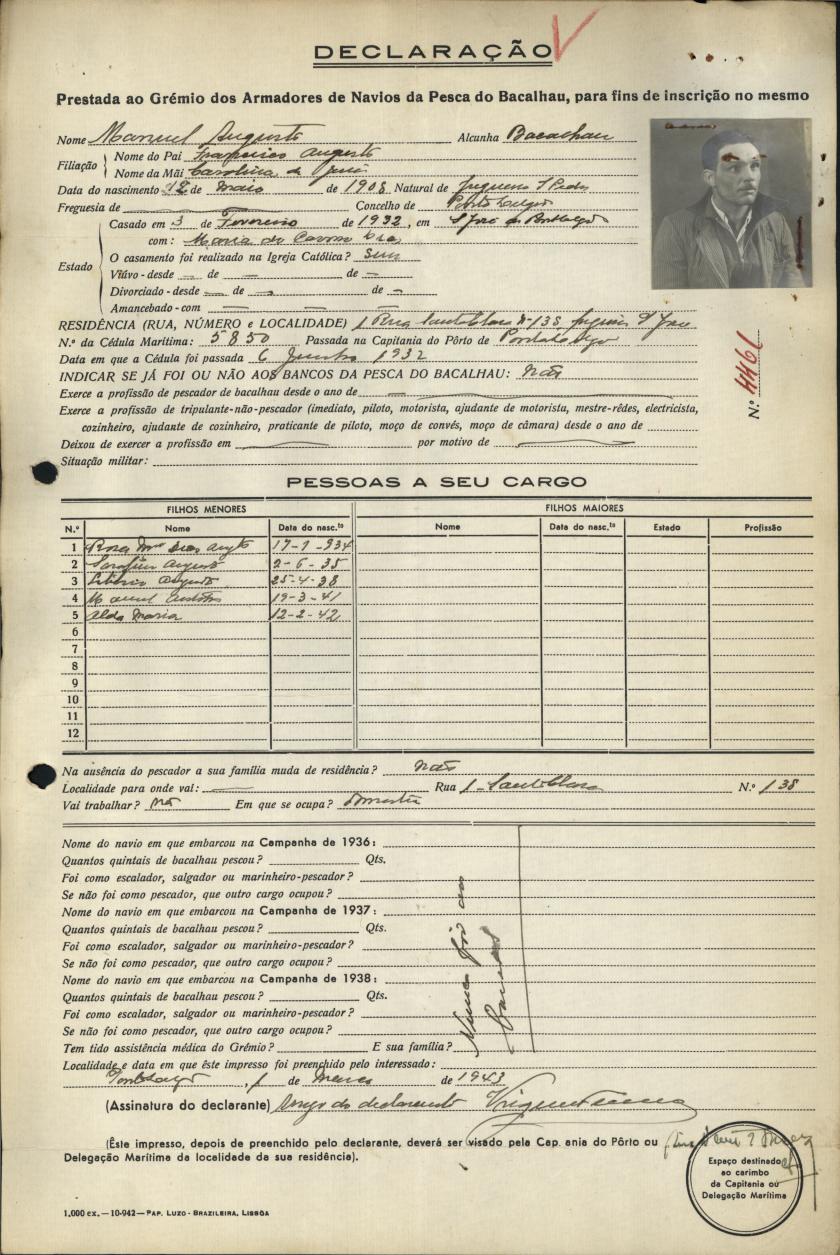 DECLARAÇÃO
Prestada ao Grémio dos Armadores de Navios da Pesca do Bacalhau, para fins de inscrição no mesmo
Nome Manuel Augusto Alcunha Bacalhau
Filiação
Nome do Pai Francisco Augusto
Nome da Mãi Carolina de Jesus
Data do nascimento 12 de Maio de 1908 Natural de S Pedro
Freguesia de Concelho de
Estado
Casado em 3 de Fevereiro de 1932, em S José de
com: Maria do Carmo
O casamento foi realizado na Igreja Católica? Sim
Viúvo - desde — de — de —
Divorciado - desde — de — de —
Amancebado - com — — —
RESIDÊNCIA (RUA, NÚMERO e LOCALIDADE) 1 Rua Santa Clara Nº 138 S José
N.º da Cédula Marítima: 5850 Passada na Capitania do Pôrto de
Data em que a Cédula foi passada 6 Junho 1932
INDICAR SE JÁ FOI OU NÃO AOS BANCOS DA PESCA DO BACALHAU: não
Exerce a profissão de pescador de bacalhau desde o ano de —
Exerce a profissão de tripulante-não-pescador (imediato, piloto, motorista, ajudante de motorista, mestre-rêdes, electricista,
cozinheiro, ajudante de cozinheiro, praticante de piloto, moço de convés, moço de câmara) desde o ano de
Deixou de exercer a profissão em por motivo de
Situação militar:
N.º 4461
PESSOAS A SEU CARGO
FILHOS MENORES FILHOS MAIORES
N.º Nome Data do nasc.to Nome Data do nasc.to Estado Profissão
1 Rosa Mª Augto 17-1-934
2 Serafim Augusto 2-6-35
3 Libério Augusto 25-4-38
4 Manuel 19-3-41
5 Alda Maria 12-2-42
6
7
8
9
10
11
12
Na ausência do pescador a sua família muda de residência? não
Localidade para onde vai: — Rua 1 - Santa Clara N.º 138
Vai trabalhar? não Em que se ocupa?
Nome do navio em que embarcou na Campanha de 1936:
Quantos quintais de bacalhau pescou? Qts.
Foi como escalador, salgador ou marinheiro-pescador?
Se não foi como pescador, que outro cargo ocupou?
Nome do navio em que embarcou na Campanha de 1937:
Quantos quintais de bacalhau pescou? Qts.
Foi como escalador, salgador ou marinheiro-pescador?
Se não foi como pescador, que outro cargo ocupou?
Nome do navio em que embarcou na Campanha de 1938:
Quantos quintais de bacalhau pescou? Qts.
Foi como escalador, salgador ou marinheiro-pescador?
Se não foi como pescador, que outro cargo ocupou?
Nunca foi aos
Bancos
Tem tido assistência médica do Grémio? E sua família?
Localidade e data em que êste impresso foi preenchido pelo interessado:
, 1 de Março de 1943
(Assinatura do declarante) do declarante
(Êste impresso, depois de preenchido pelo declarante, deverá ser visado pela Cap. ania do Pôrto ou
Delegação Marítima da localidade da sua residência).
Espaço destinado
ao carimbo
da Capitania ou
Delegação Marítima
1,000 ex. — 10-942 — PAP. LUZO - BRAZILEIRA, LISBÔA